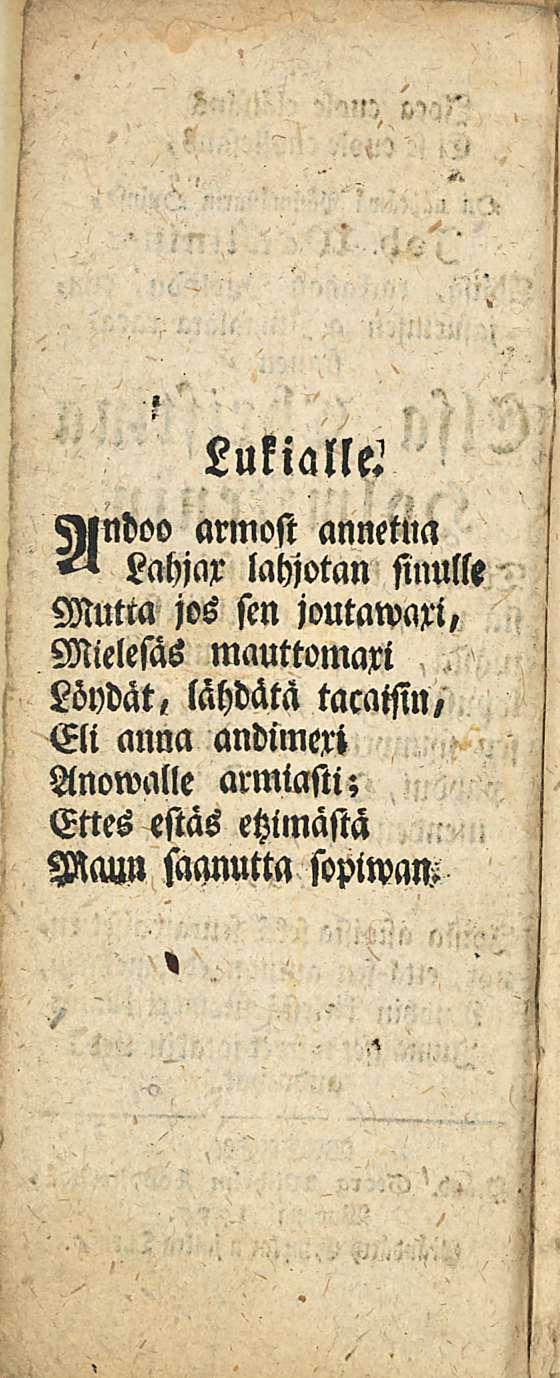 Lukialle.
Andoo armost annettua
Lahjax lahjotan sinulle
Mutta jos sen joutawaxi,
Mielesäs mauttomaxi
Löydät, lähdätä tacaisin,
Eli anna andimexi
Anowalle armiasti;
Ettes estäs etzimästä
Maun saanutta sopiwan.